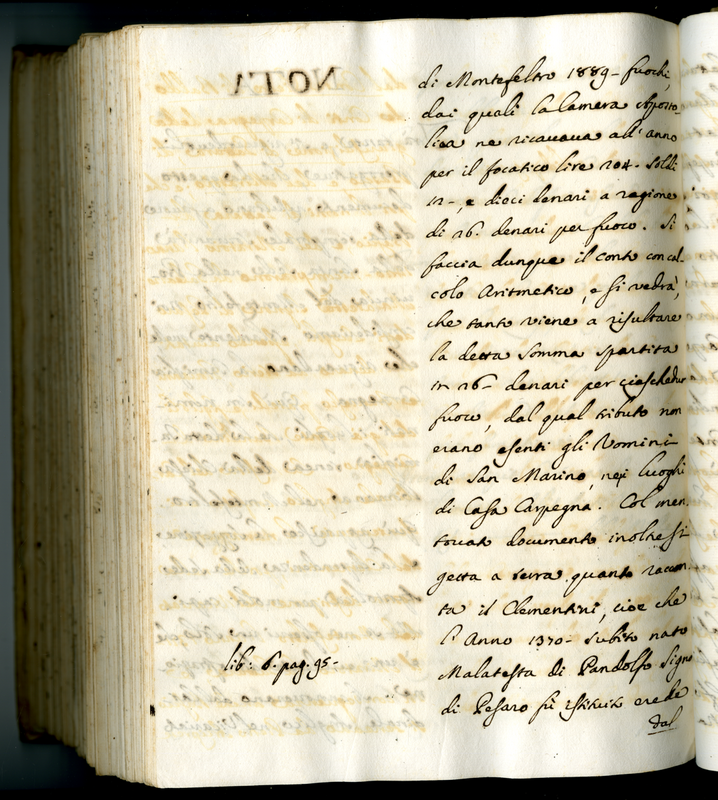 di Montefeltro 1889- fuochi,
dai quali la Camera Aposto-
lica ne ricavava all'anno
per il focatico lire 204- soldi
12-, e dieci denari a ragione
di 26. denari per fuoco. Si
faccia dunque il conto con cal-
colo Aritmetico, e si vedrà,
che tanto viene a risultare
la detta somma spartita
in 26- denari per ciaschedun
fuoco, dal qual tributo non
erano esenti gli Uomini
di San Marino, nei luoghi
di Casa Carpegna. Col men-
tovato documento inoltre si
getta a terra quanto raccon-
ta il Clementini, cioè che
l'Anno 1370- subito nato
Malatesta di Pandolfo Signo
di Pesaro fù istituito erede
dal
lib: 6. pag. 95-